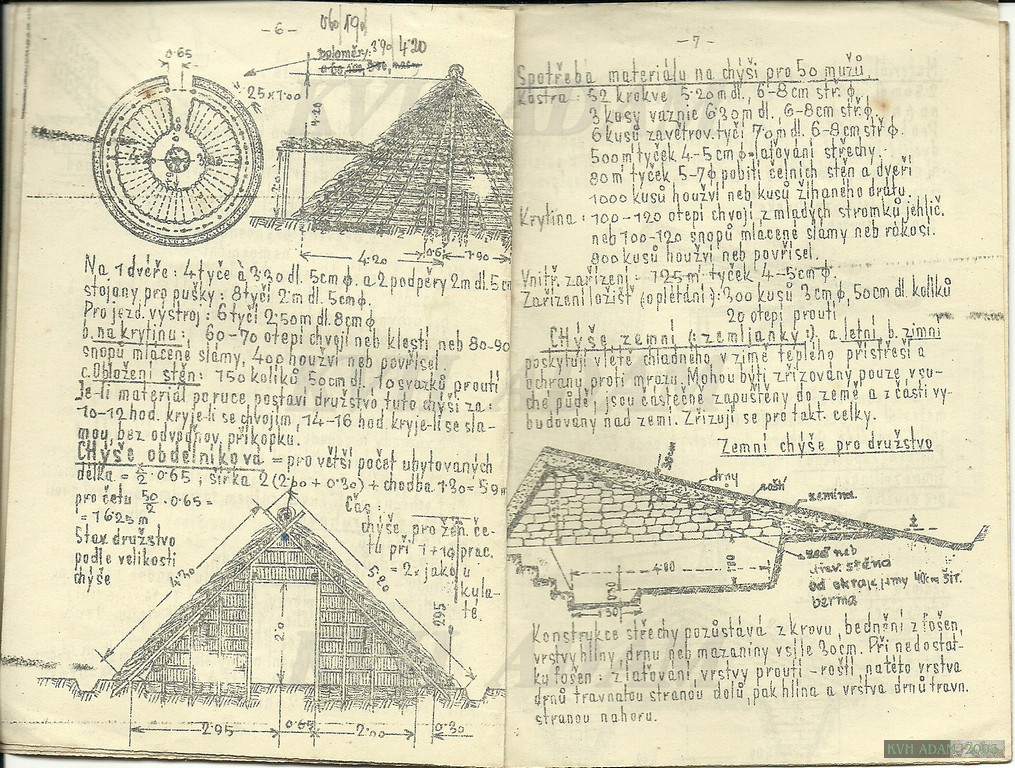 - 6 -
0.65
poloměry: 3.90 4.20
25×7.00
4.20
4.20
1.90
Na 1 dvéře: 4 tyče à 3.30 dl. 5cm ϕ. a 2 podpěry 2m dl. 5 cm
stojany pro pušky: 8 tyčí 2m dl. 5cm ϕ.
Pro jezd. výstroj: 6 tyčí 2.50m dl. 8cm ϕ
b. na krytinu: 60-70 otepí chvojí neb klestí, neb 80-90
snopů mlácené slámy, 400 houžví neb povřísel.
c. Obložení stěn: 150 kolíků 50cm dl. 10 svazků proutí
Je-li materiál po ruce, postaví družstvo tuto chýši za:
10-12 hod. kryje-li se chvojím, 14-16 hod. kryje-li se slá-
mou, bez odvodňov. příkopku.
CHýše obdélníková = pro větší počet ubytovaných
délka = ½ 0.65; šířka 2 (2.60 + 0.30) + chodba 1.30 = 5.9m
pro četu 50/2 . 0.65 =
= 16.25 m
Stav. družstvo
podle velikosti
chýše
Čas:
chýše, pro žen. če-
tu při 1+19 prac.
= 2x jako u
kula-
té.
5.80
2.0
295
2.95
0.65
2.00
0.30
- 7 -
Spotřeba materiálu na chýši pro 50 mužů.
Kostra: 52 krokve 5.20m dl., 6-8cm stř. ϕ
3 kusy vaznie 6.30m dl. 6-8cm stř. ϕ.
6 kusů zavětrov. tyčí 7.0m dl. 6-8cm stř. ϕ.
500 m tyček 4-5cm ϕ = laťování střechy.
80m tyček 5-7ϕ pobití čelních stěn a dveří
1000 kusů houžví neb kusů žíhaného drátu.
Krytina: 100-120 otepí chvojí z mladých stromků jehlič.
neb 100-120 snopů mlácené slámy neb rákosí.
800 kusů houžví neb povřísel.
Vnitř. zařízení: 125 m tyček 4-5cm ϕ.
Zařízení ložišť (oplétání): 300 kusů 3cm ϕ, 50cm dl. kolíků
20 otepí proutí
CHýše zemní (:zemljanky:), a. letní, b. zimní
poskytují v létě chladného v zimě teplého přístřeší a
ochrany proti mrazu. Mohou býti zřizovány pouze v su-
ché půdě, jsou částečně zapuštěny do země a z části vy-
budovány nad zemí. Zřizují se pro takt. celky.
Zemní chýše pro družstvo
30cm
drny
roští
zemina
zeď neb
dřev. stěna
od okraje jámy 40cm šir.
berma
4.80
1.80
1.50
Konstrukce střechy pozůstává z krovu, bednění z fošen,
vrstvy hlíny, drnu neb mazaniny v síle 30cm. Při nedostat-
ku fošen: z laťování, vrstvy proutí - roští, na této vrstva
drnů travnatou stranou dolů, pak hlína a vrstva drnů travn.
stranou nahoru.
KVH ADAM
KVH ADAM
KVH ADAM
KVH ADAM 2005